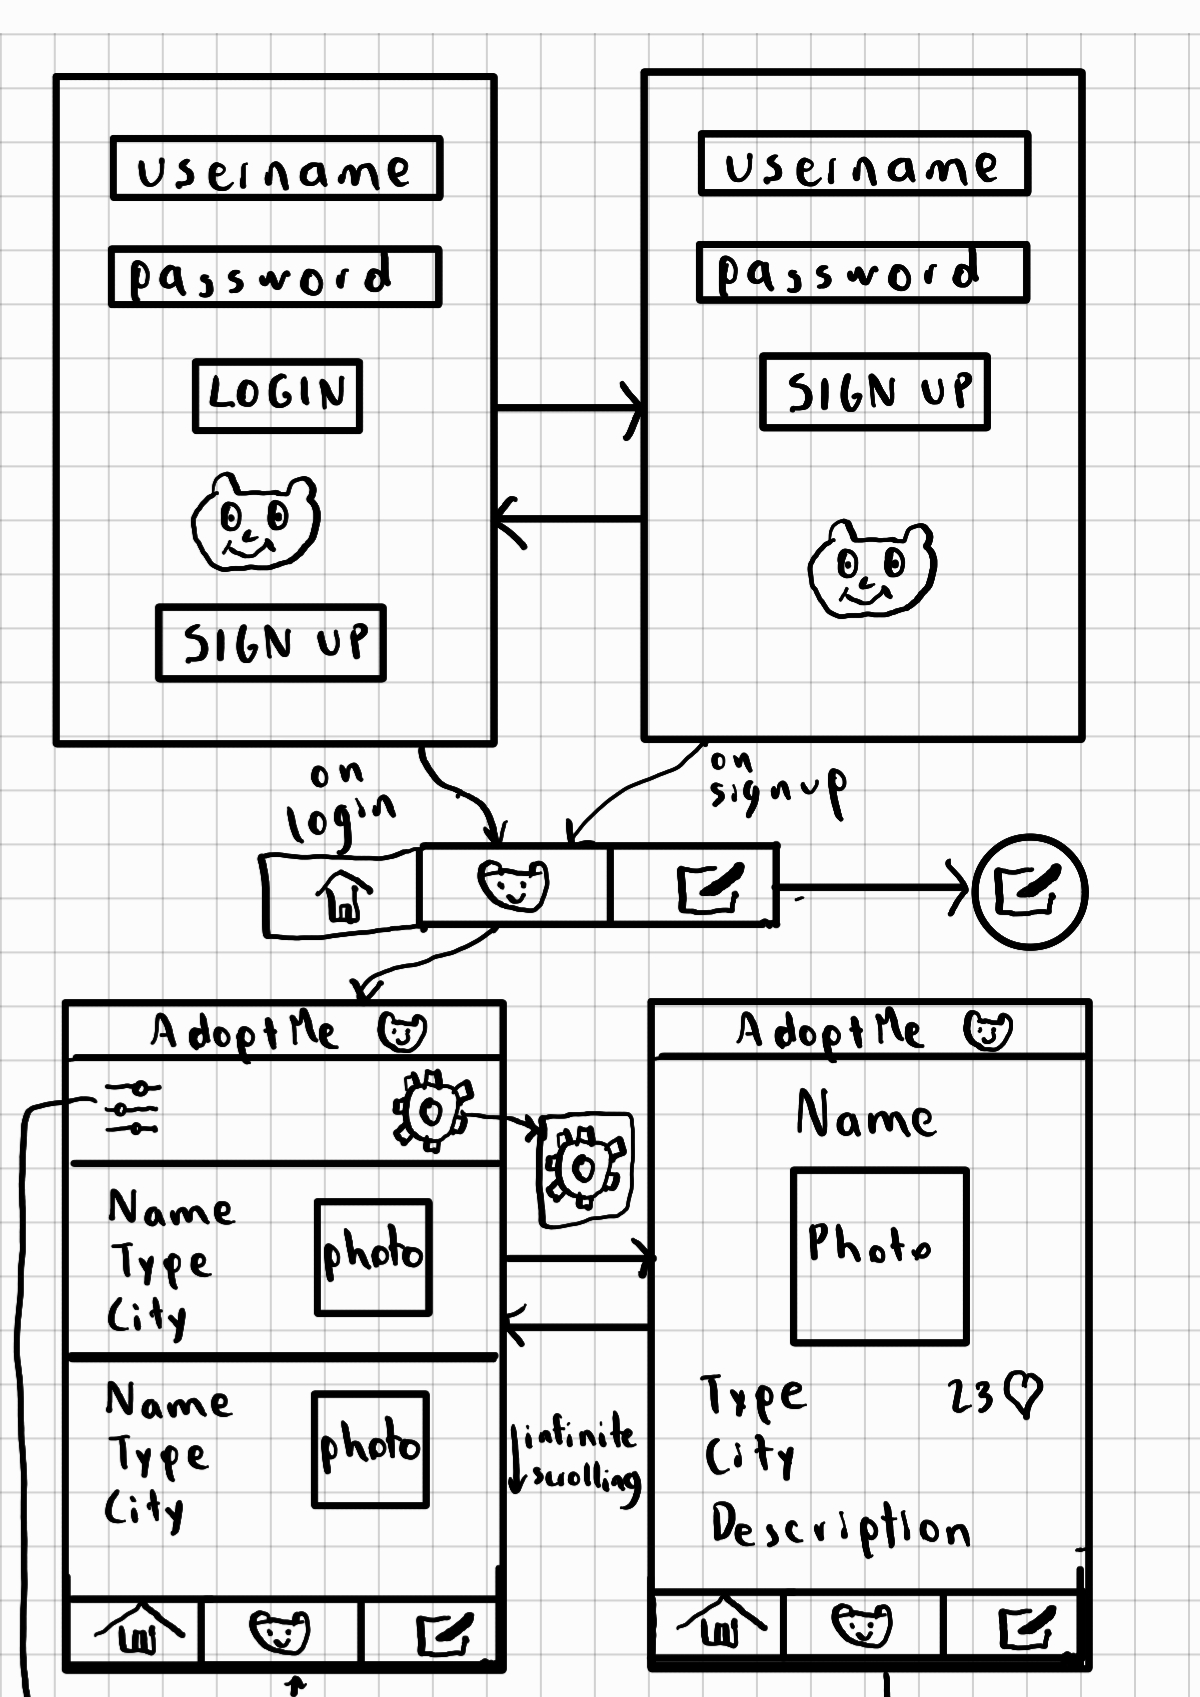 username
password
LOGIN
SIGN UP
username
password
SIGN UP
on
login
on
signup
AdoptMe
Name
Type
City
photo
Name
Type
City
photo
infinite
scrolling
AdoptMe
Name
Photo
Type
23
City
Description